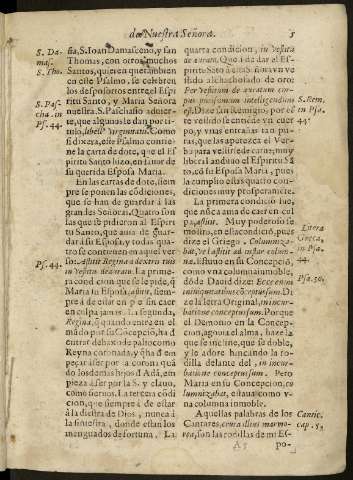 de Nuestra Señora. 5
S. Damas.
S. Tho.
S. Pascha. in Ps. 44.
Ps. 44.
sia, S. Ioan Damasceno, y san
Thomas, con otros muchos
Santos, quieren que tambien
en este Psalmo, se celebren
los desposorios entre el Espi
ritu Santo, y Maria Señora
nuestra. S. Paschasio aduier-
te, que algunos le dan por ti-
tulo, libell
Si dixera, este Psalmo contie-
ne la carta de dote, que el Es
piritu Santo hizo, en fauor de
su querida Esposa Maria.
En las cartas de dote, siem
pre se ponen las códiciones,
que se han de guardar á las
grandes Señoras. Quatro son
las que se pidieron al Espiri
tu Santo, que auia de guar-
dar á su Esposa, y todas qua-
tro se contienen en aquel ver
so. Astitit Regina à dextris tuis
in vestitu deaurato. La prime-
ra condicion que se le pide, q̃
Maria su Esposa, astitit, siem-
pre à de estar en pie sin caer
en culpa jamas. La segunda,
Regina, q̃ quando entre en el
mũdo por su Cócepció, hà d̃
entrar debaxo de palio como
Reyna coronada, y q̃ ha d̃ em
peçar à ser por la corona quá
do los demas hijos d̃ Adã, em
pieza à ser por la S. y clauo,
como sieruos. La tercera códi
cion, que siempre à de estar
à la diestra de Dios, nunca à
la siniestra, donde estan los
menguados de fortuna. La
quarta condicion, in vestitu
de aurato. Que la de dar el Es-
piritu Sãto à esta Señora vn ve
stido alchachofado de oro.
Per vestitum de auratum cor-
pus gloriosum intelligendum
est. Dize san Remigio, por es
te vestido se entiende vn cuer
po, y vnas entrañas tan pu-
ras, que las apetezca el Ver-
bo para vestirse de carne; muy
liberal anduuo el Espiritu Sã
to, có su Esposa Maria, pues
la cumplio estas quatro condi-
ciones muy prosperamente.
La primera condició fue,
que nũca auia de caer en cul
pa, astitit. Muy poderoso se
mostro, en esta condició, pues
dize el Griego. Columnizà-
bat, vel astitit ad instar colum-
næ. Estuuo en su Concepció,
como vna coluna inmoble,
dóde Dauid dize: Ecce enim
iniquitatibus cóceptus sum. Di
ze la letra Original, in incur-
batione conceptus sum. Porque
el Demonio en la Concep-
cion, agouia el alma, haze la
que se incline, que se doble,
y le adore hincando la ro-
dilla delante del, in incur-
batione conceptus sum. Pero
Maria en su Concepcion, co
lumnizabat, estaua como v-
na columna inmoble.
Aquellas palabras de los
Cantares, coma dens marmo-
rea, son las rodillas de mi Es-
S. Rem. in Psa. 44.
Litera Græca, in Psa. 44.
Psa. 50.
Cantic. cap. 5.
A 5 po-